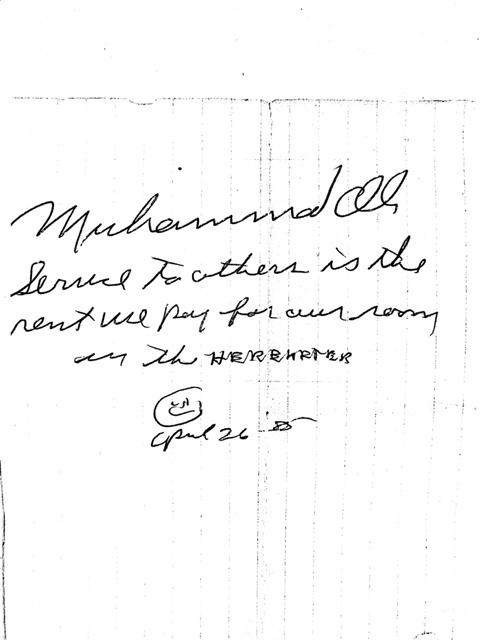 Muhammad Ali
Service to others is the
rent we pay for our room
in the HEREAFTER
April 26 '85